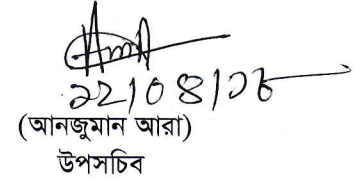 ২২/০৪/১৮
(আনজুমান আরা)
উপসচিব